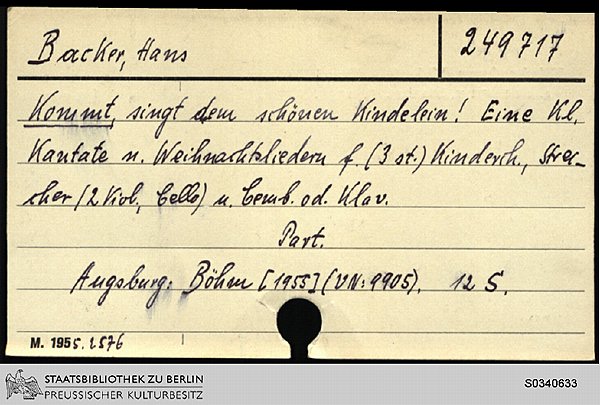 Backer, Hans
249717
Kommt, singt dem schönen Kindelein! Eine kl.
Kantate n. Weihnachtsliedern f. (3 st.) Kinderch., Strei-
cher (2 Viol., Cello) u. Cemb. od. Klav.
Part.
Augsburg: Böhm [1955] (VN: 9905). 12 S.
M. 1955.2576
STAATSBIBLIOTHEK ZU BERLIN
PREUSSISCHER KULTURBESITZ
S0340633